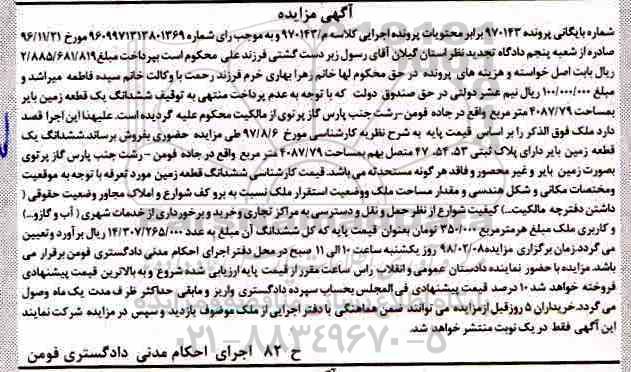 آگهی مزایده
شماره بایگانی پرونده ۹۷۰۱۴۳ برابر محتویات پرونده اجرایی کلاسه م/۹۷۰۱۴۳ و به موجب رای شماره ۹۶۰۹۹۷۱۳۱۳۸۰۱۳۶۹ مورخ ۹۶/۱۱/۲۱
صادره از شعبه پنجم دادگاه تجدید نظر استان گیلان آقای رسول زبر دست گشتی فرزند علی محکوم است بپرداخت مبلغ ۲/۸۸۵/۶۸۱/۸۱۹
ریال بابت اصل خواسته و هزینه های پرونده در حق محکوم لها خانم زهرا بهاری خرم فرزند رحمت با وکالت خانم سیده فاطمه میراشد و
مبلغ ۱۰۰/۰۰۰/۰۰۰ ریال نیم عشر دولتی در حق صندوق دولت که با توجه به عدم پرداخت منتهی به توقیف ششدانگ یک قطعه زمین بایر
بمساحت ۴۰۸۷/۷۹ متر مربع واقع در جاده فومن-رشت جنب پارس گاز پرتوی از مالکیت محکوم علیه گردیده است. علیهذا این اجرا قصد
دارد ملک فوق الذکر را بر اساس قیمت پایه به شرح نظریه کارشناسی مورخ ۹۷/۸/۶ طی مزایده حضوری بفروش برساند.ششدانگ یک
قطعه زمین بایر دارای پلاک ثبتی ۵۳، ۵۴، ۴۷ متصل بهم بمساحت ۴۰۸۷/۷۹ متر مربع واقع در جاده فومن – رشت جنب پارس گاز پرتوی
بصورت زمین بایر و غیر محصور و فاقد هر گونه مستحدثه می باشد. قیمت کارشناسی ششدانگ قطعه زمین مورد تعرفه با توجه به موقعیت
ومختصات مکانی و شکل هندسی و مقدار مساحت ملک ووضعیت استقرار ملک نسبت به برو کف شوارع و املاک مجاور وضعیت حقوقی (
داشتن دفترچه مالکیت...) کیفیت شوارع از نظر حمل و نقل و دسترسی به مراکز تجاری وخرید و برخورداری از خدمات شهری ( آب و گاز و...)
و کاربری ملک مبلغ هرمترمربع ۳۵۰/۰۰۰ تومان بعنوان قیمت پایه که کل ششدانگ آن مبلغ به عدد ۱۴/۳۰۷/۲۶۵/۰۰۰ ریال برآورد وتعیین
می گردد.زمان برگزاری مزایده ۹۸/۰۲/۰۸ روز یکشنبه ساعت ۱۰ الی ۱۱ صبح در محل دفتر اجرای احکام مدنی دادگستری فومن برقرار می
باشد. مزایده با حضور نماینده دادستان عمومی و انقلاب راس ساعت مقرر از قیمت پایه ارزیابی شده شروع و به بالاترین قیمت پیشنهادی
فروخته خواهد شد ۱۰ درصد قیمت پیشنهادی فی المجلس بحساب سپرده دادگستری واریز و مابقی حداکثر ظرف مدت یک ماه وصول
می گردد.خریداران ۵ روز قبل از مزایده می توانند ضمن هماهنگی با دفتر اجرایی از ملک موضوف بازدید و سپس در مزایده شرکت نمایند
این آگهی فقط در یک نوبت منتشر خواهد شد.
ح ۸۲ اجرای احکام مدنی دادگستری فومن
۰۲۱-۸۸۳۴۹۶۷۰-۵